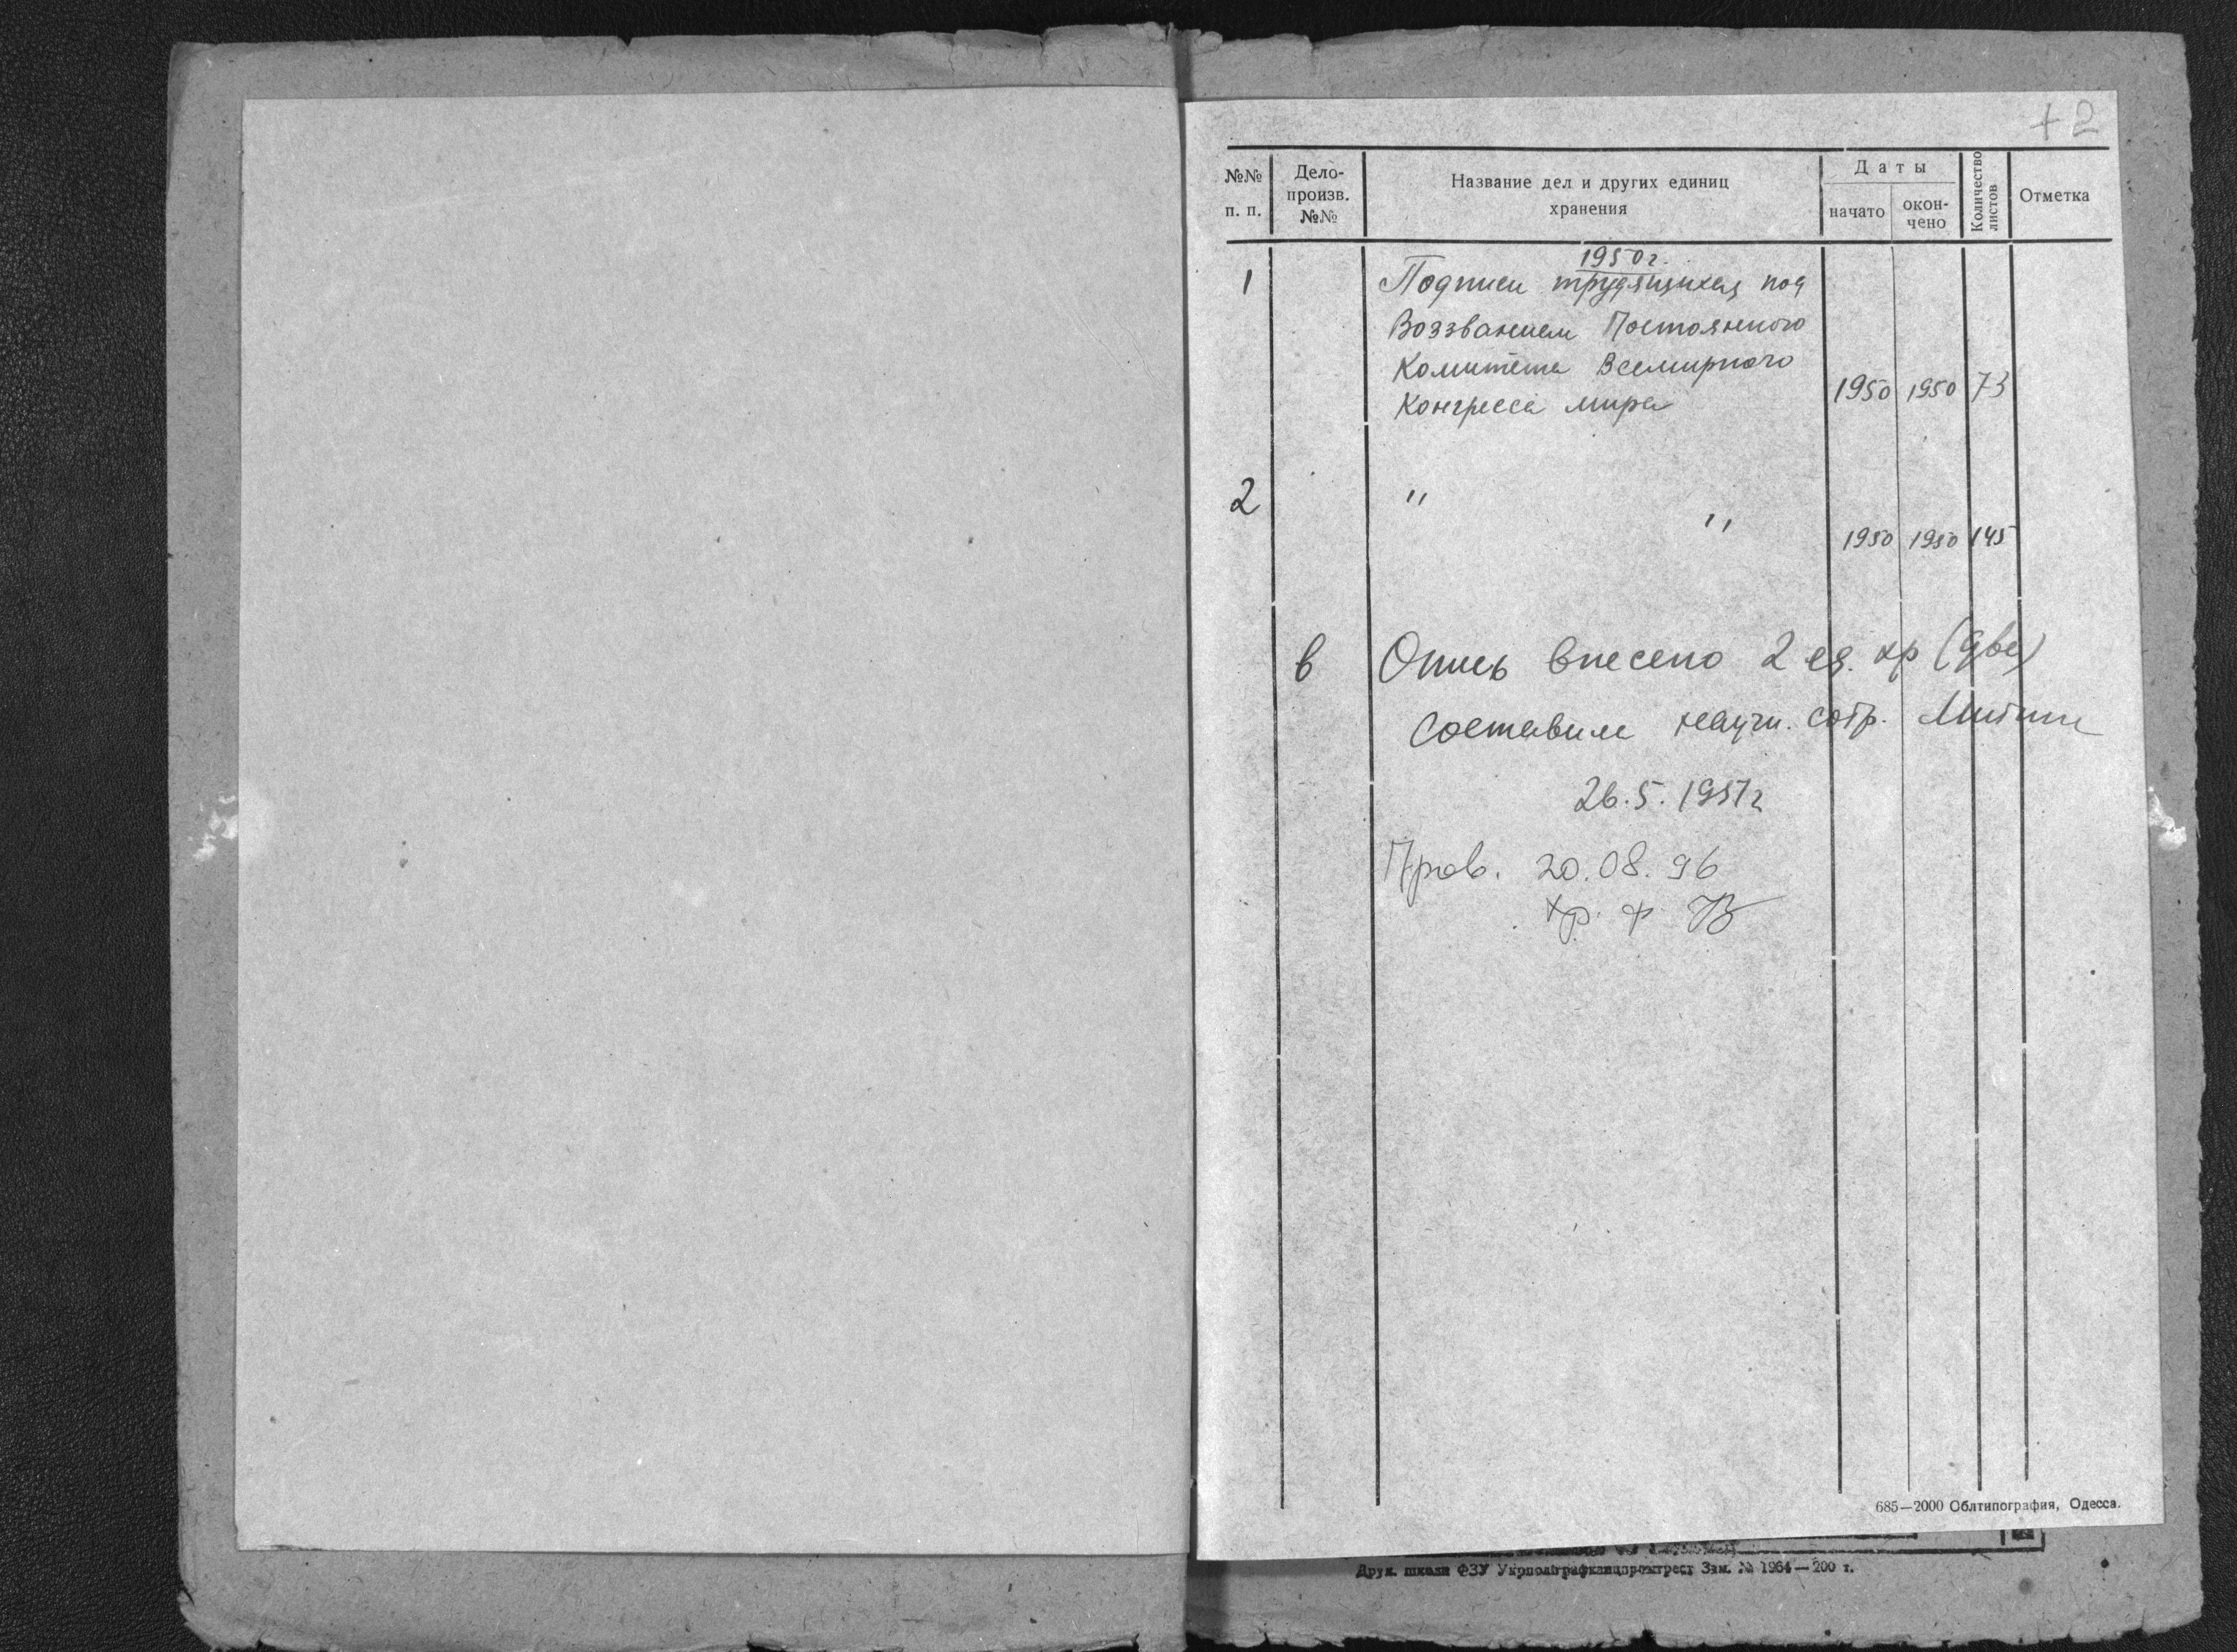 +2
№№ п. п.
Дело-произв. №№
Название дел и других единиц хранения
Даты
начато
окон-чено
Количество листов
Отметка
1950г.
1 Подписи трудящихся под
Воззванием Постоянного
Комитета Всемирного
Конгресса мира 1950 1950 73
2 " " 1950 1950 145
в Опись внесено 2 ед. хр (две)
составил научн. сотр.
26.5.1951г
Пров. 20.08.96
хр.
685—2000 Облтипография, Одесса.
Друк. школи ФЗУ Зам. № 1964—200 т.